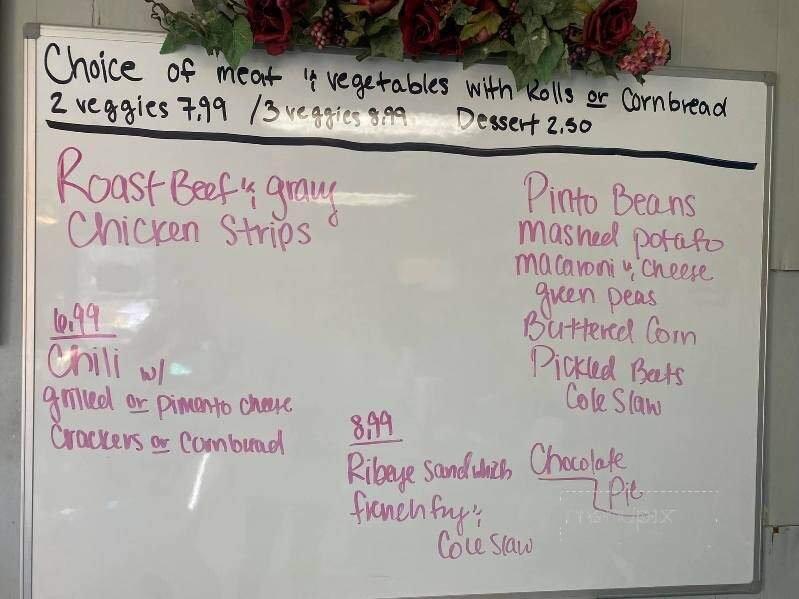 Choice of meat & vegetables with Rolls or Cornbread
2 veggies 7.99 / 3 veggies 8.99 Dessert 2.50
Roast Beef & gravy
Chicken Strips
6.99
Chili w/
grilled or pimento cheese
Crackers or Cornbread
8.99
Ribeye Sandwhich
french fry &
Cole Slaw
Pinto Beans
mashed potato
macaroni & cheese
green peas
Buttered Corn
Pickled Beets
Cole Slaw
Chocolate
Pie